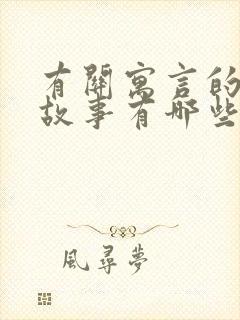 有關寓言的
故事有哪些
風尋夢